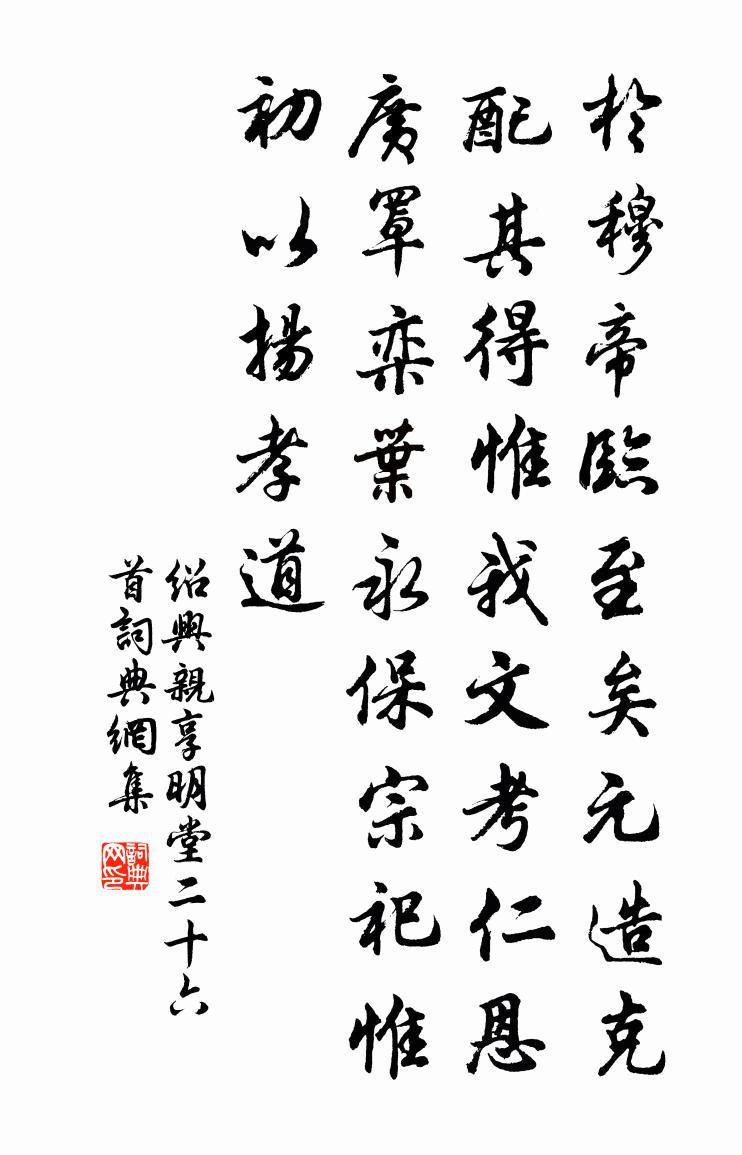 於穆帝臨至矣元造克
配其得惟我文考仁恩
廣覃奕葉永保宗祀惟
初以揚孝道
紹興親享明堂二十六
首詞典網集
詞典網印